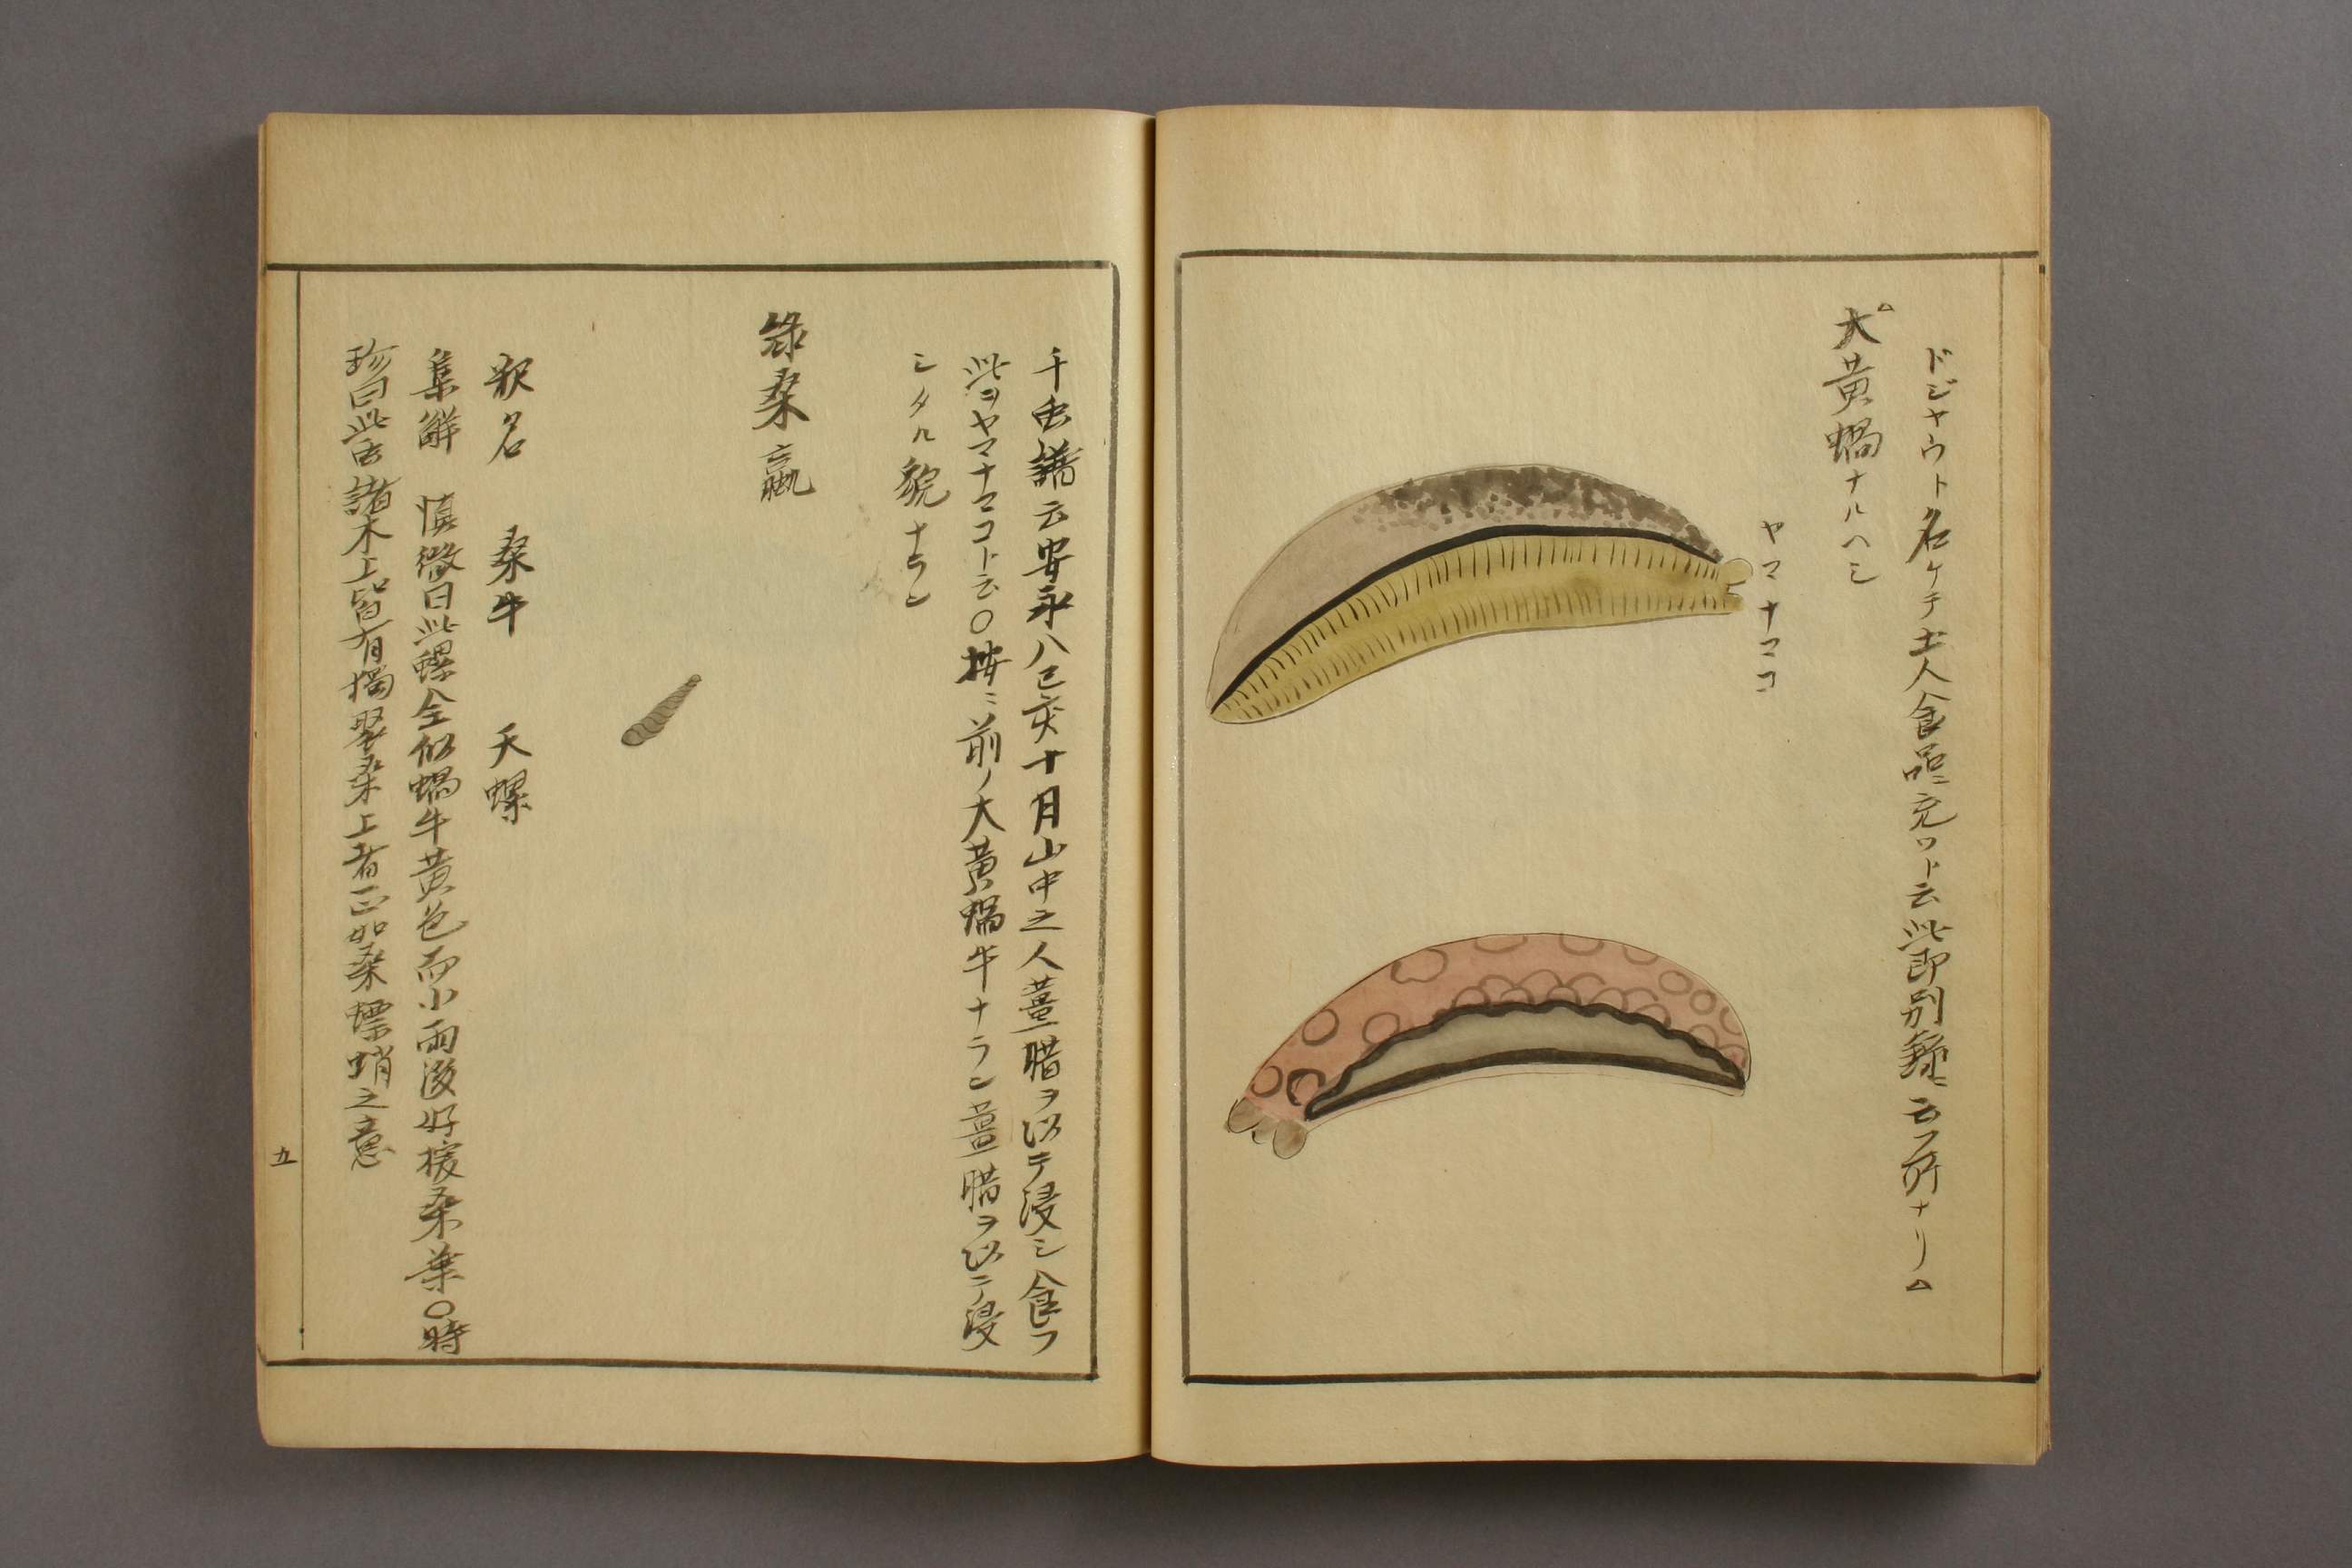 ドジヤウト名ケテ土人食品ニ充ツト云此即別録ニ云フ所ナリ△
△大黄蝸ナルヘシ
ヤマナマコ
千虫譜云安永八己亥十月山中之人薑腊ヲ以テ浸シ食フ
此ヲヤマナマコト云〇按ニ前ノ大黄蝸牛ナラン薑腊ヲ以テ浸
シタル貌ナラン
緣桑蠃
釈名 桑牛 天螺
集解 慎微曰此螺全似蝸牛黄色而小雨後好援桑葉〇時
珍曰此虫諸木上皆有獨取桑上者正如桑螵蛸之意
五